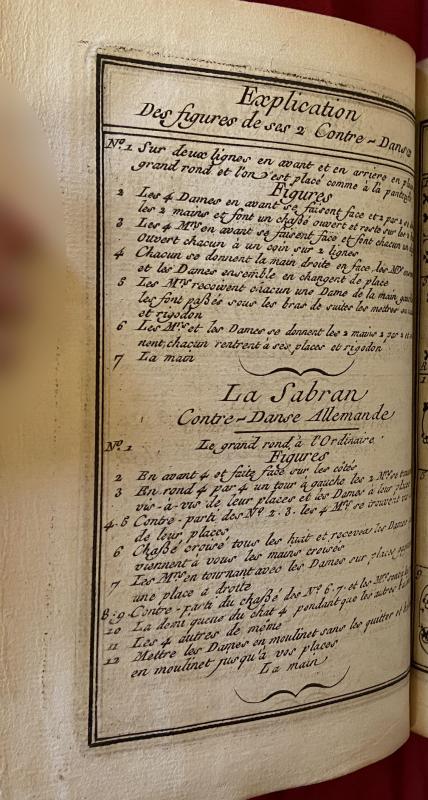 Explication
Des figures de ses 2 Contre-Danses
Nº. 1 Sur deux lignes en avant et en arriere en
grand rond et l'on s'est placé comme à la
Figures
2 Les 4 Dames en avant se faisent face et 2 par 2
les 2 mains et font un chaßé ouvert et reste sur les
3 Les 4 Mrs en avant se faisent face et font chacun un
Ouvert chacun à un coin sur 2 lignes
4 Chacun se donnent la main droite en face, les Mrs
et les Dames ensemble en changent de place
5 Les Mrs recoivent chacun une Dame de la main
les font paßés sous les bras de suites les mettres
et rigodon
6 Les Mrs et les Dames se donnent les 2 mains 2 par 2 et
nent, chacun rentrent à ses places et rigodon
7 La main
La Sabran
Contre-Danse Allemande
Nº. 1 Le grand rond à l'Ordinaire
Figures
2 En avant 4 et faite face sur les côtés
3 En rond 4 par 4 un tour à gauche les 2 Mrs se
vis-à-vis de leur places et les Dames à leur place
4.5 Contre-parti des Nº. 2.3. les 4 Mrs se trouvent
de leur places
6 Chaßé croisé tous les huit et recevés les Dames
viennent à vous les mains croisés
7 Les Mrs en tournant avec les Dames sur place
une place à droite
8.9 Contre-parti du chaßé des Nº. 6.7. et les Mrs
10 La demi queue du chat 4 pendant que les autres
11 Les 4 autres de même
12 Mettre les Dames en moulinet sans les quitter et
en moulinet jusqu'à vos places
La main